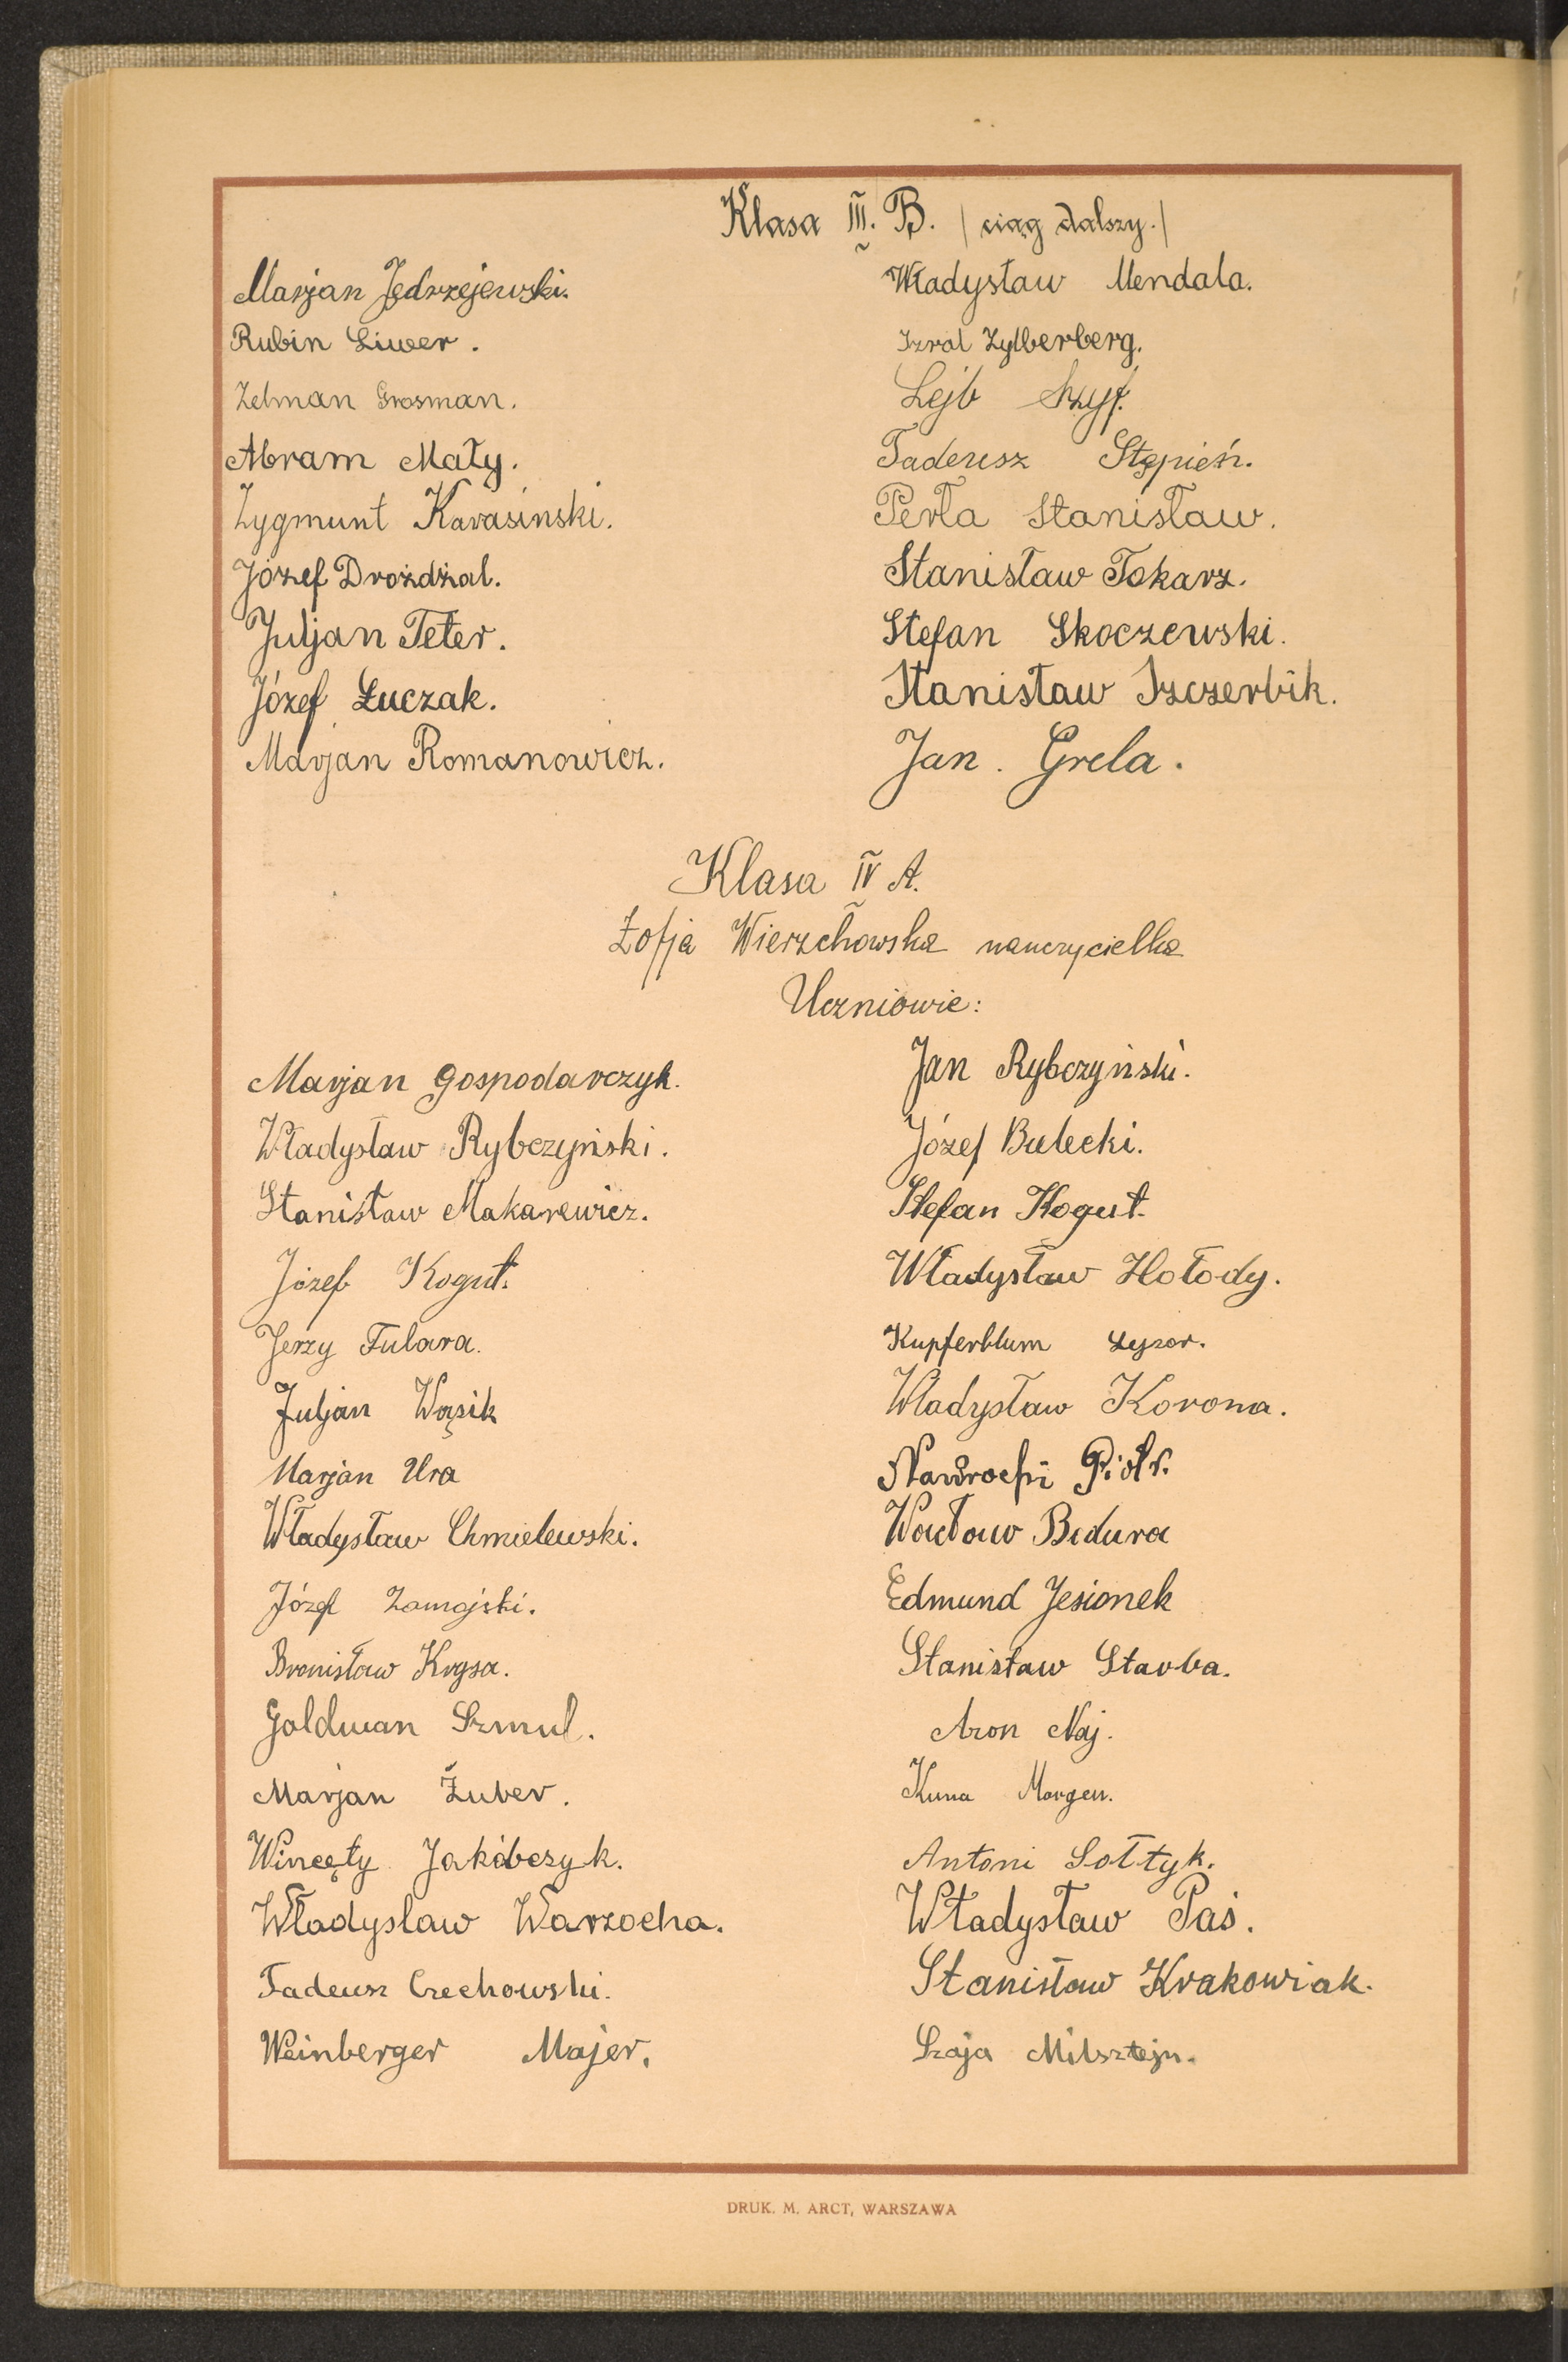 Klasa III. B. /ciąg dalszy./
Marjan Jędrzejewski.
Rubin Liwer.
Zelman Grosman.
Abram Mały.
Zygmunt Karasiński.
Józef Drożdżal.
Juljan Teter.
Józef Łuczak.
Marjan Romanowicz.
Władysław Mendala.
Izral Zylberberg.
Lejb Szyf.
Tadeusz Stępień.
Perła Stanisław.
Stanisław Tokarz.
Stefan Skoczewski.
Stanisław Szczerbik.
Jan. Grela.
Klasa IV A.
Zofja Wierzchowska nauczycielka
Uczniowie:
Marjan Gospodarczyk.
Władysław Rybczyński.
Stanisław Makarewicz.
Józef Kogut.
Jerzy Fulara.
Juljan Wąsik
Marjan Ura
Władysław Chmielewski.
Józef Zamojski.
Bronisław Krysa.
Goldman Szmul.
Marjan Żuber.
Wincęty Jakóbczyk.
Władysław Warzocha.
Tadeusz Czechowski.
Weinberger Majer.
Jan Rybczyński.
Józef Bulecki.
Stefan Kogut.
Władysław Hołody.
Kupferblum Lejzor.
Władysław Korona.
Nawrocki Piotr.
Wacław Bidura
Edmund Jesionek
Stanisław Starba.
Aron Naj.
Kuna Morgen.
Antoni Sołtyk.
Władysław Paś.
Stanisław Krakowiak.
Szaja Milsztejn.
DRUK. M. ARCT, WARSZAWA